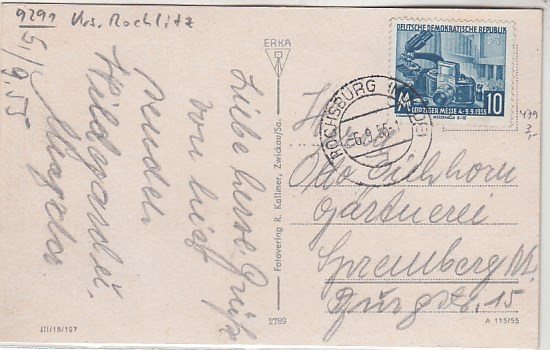 9291 Krs. Rochlitz
5./9.55
Liebe herzl. Grüße
von hier
senden
Hildebrandt.
Magdor
ERKA
Fotoverlag R. Kallmer, Zwickau/Sa.
2789
III/18/197
A 115/55
DEUTSCHE DEMOKRATISCHE REPUBLIK
LEIPZIGER MESSE 4.-9.9.1955
10
ROCHSBURG
-6.9.55
479
3,-
Otto Eichhorn
Gärtnerei
Spremberg N.L.
Burgstr. 15